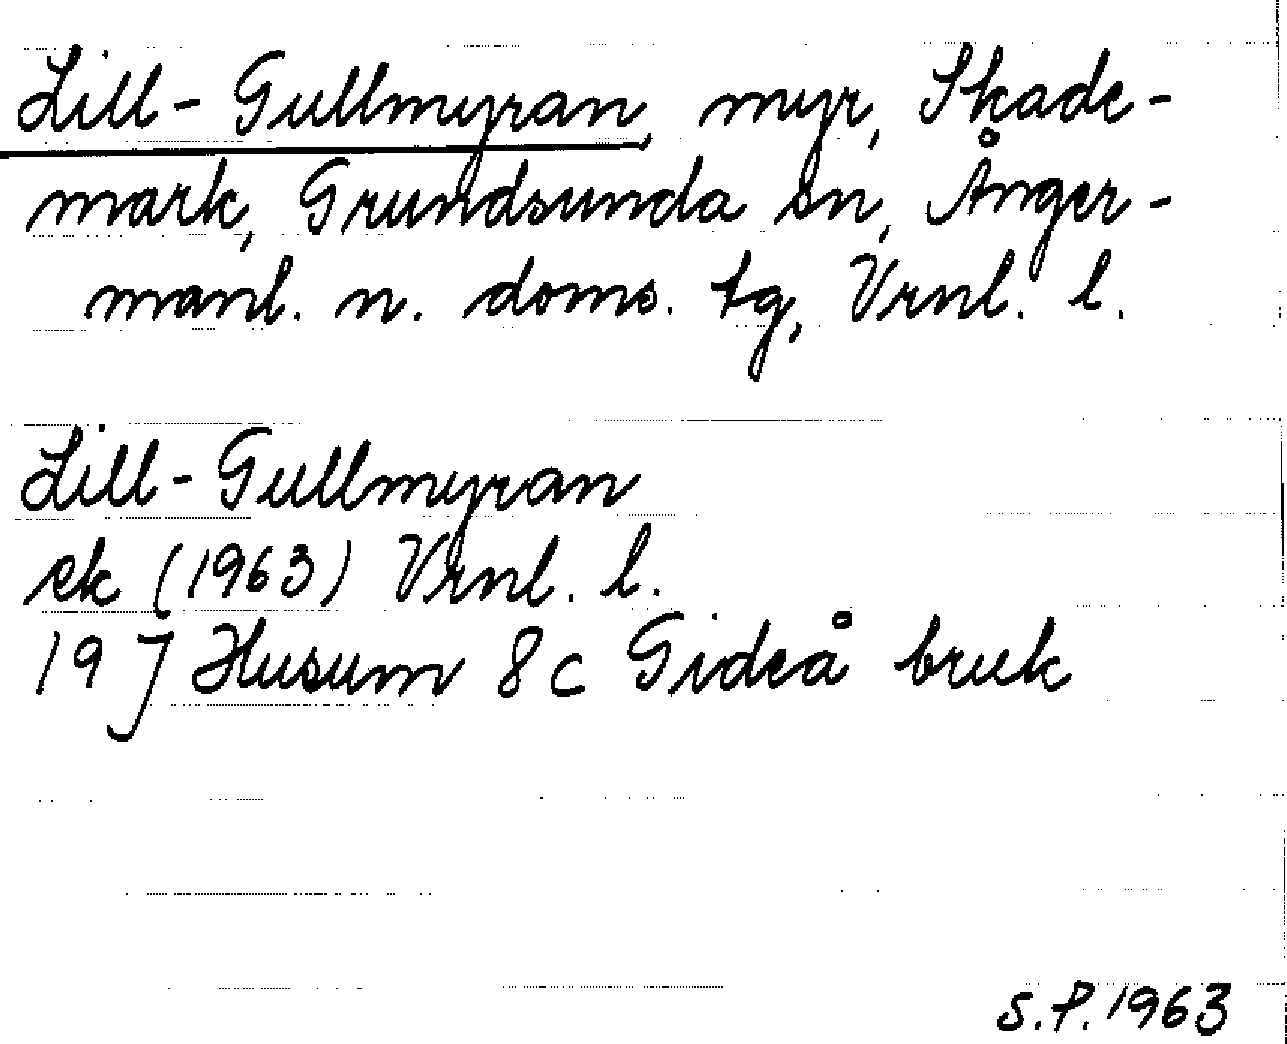 Lill-Gullmyran, myr, Skade-
mark, Grundsunda sn, Ånger-
manl. n. doms. tg, Vrnl. l.
Lill-Gullmyran
ek (1963) Vrnl. l.
19 J Husum 8 c Gideå bruk
S.P. 1963